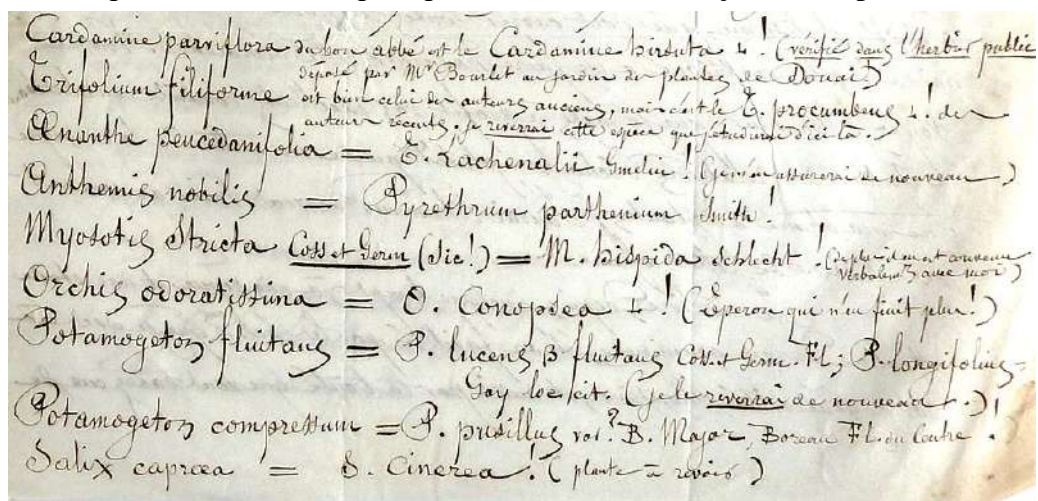 Cardamine parviflora du bon abbé est le Cardamine hirsuta L! (vérifié dans l'herbier public
déposé par Mr Bourlet au jardin des plantes de Douai)
Trifolium filiforme est bien celui des auteurs anciens, mais c'est le T. procumbens L! des
auteurs récents. je reverrai cette espèce que j'étudierai d'ici là.
Œnanthe peucedanifolia = Œ. Lachenalii Gmelin! (je m'en assurerai de nouveau)
Anthemis nobilis = Pyrethrum parthenium Smith!
Myosotis Stricta Coss et Germ (sic!) = M. hispida Schlecht! (de plus il en est convenu
verbalemt avec moi)
Orchis odoratissima = O. Conopsea L! (Eperon qui n'en finit plus!)
Potamogeton fluitans = P. lucens B fluitans Coss. et Germ. Fl; P. longifolius
Gay loc. cit. (je le reverrai de nouveau.)
Potamogeton compressum = P. pusillus var? B. Major, Boreau Fl. du Centre!
Salix capræa = S. Cinerea! (plante à revoir)